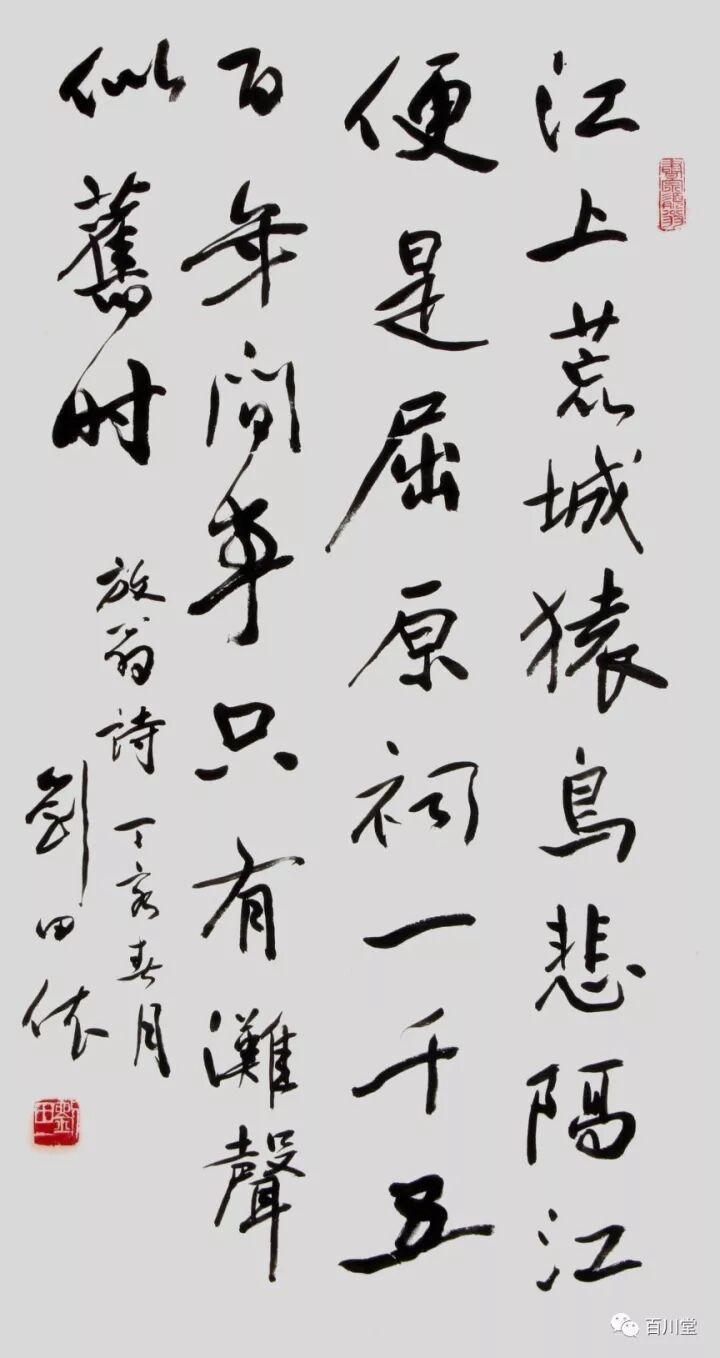 江上荒城猿鳥悲隔江
便是屈原祠一千五
百年間事只有灘聲
似舊时
放翁詩 丁亥春月
劉田依
百川堂